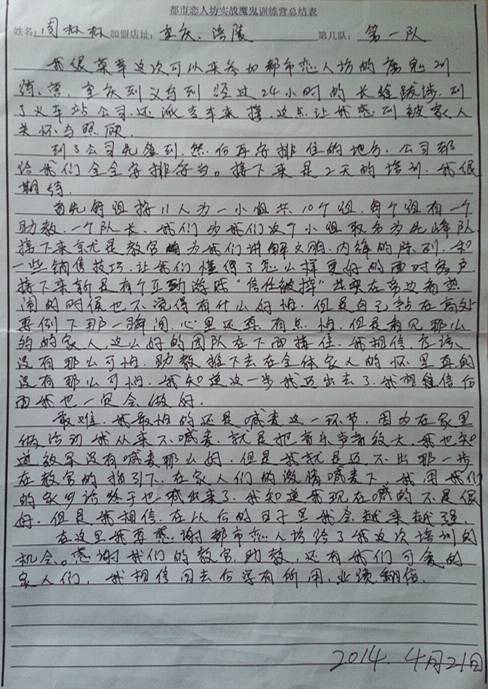 都市恋人坊实战魔鬼训练营总结表
姓名: 周林林 加盟店址: 重庆.涪陵 第几队: 第一队
我很荣幸这次可以来参加都市恋人坊的魔鬼训
练营, 重庆到义乌到 经过24小时的长途跋涉, 到
了火车站公司还派专车来接, 这点让我感到被家人
关怀与照顾
到了公司先签到, 然后再安排住的地方, 公司都
给我们全安排好了. 接下来是2天的培训. 我很
期待.
首先每组按11人为一小组共10个组, 每个组有一个
助教, 一个队长, 我们为我们这个小组取名为先锋队
接下来就是教官为我们讲解文胸. 内裤的陈列. 和
一些销售技巧. 让我们懂得了怎么样更好的面对客户
接下来就是有个互动游戏"信任被摔"其实在旁边看热
闹的时候也不觉得有什么好怕, 但是自己站在高处
要倒下那一瞬间, 心里还真有点怕, 但是看见那么
多的家人, 这么好的团队在下面接住, 我相信应该
没有那么可怕, 助教推下去在全体家人的怀里真的
没有那么可怕, 我知道这一步我迈出去了, 我相信后
面我也一定会做好.
最难. 我最怕的还是喊麦这一环节, 因为在家里
做活动我从来不喊麦, 就是把音乐声音放大, 我也知
道效果没有喊麦那么好, 但是我就是迈不出那一步
在教官的指引下, 在家人们的激情喊麦下, 我用我们
的家乡话终于也喊出来了, 我知道我现在喊的不是很
好, 但是我相信, 在以后的日子里我会越来越强.
在这里我再感谢都市恋人坊给了我这次培训的
机会. 感谢我们的教官助教, 还有我们可爱的
家人们, 我相信回去后学有所用, 业绩翻倍.
2014. 4月21日